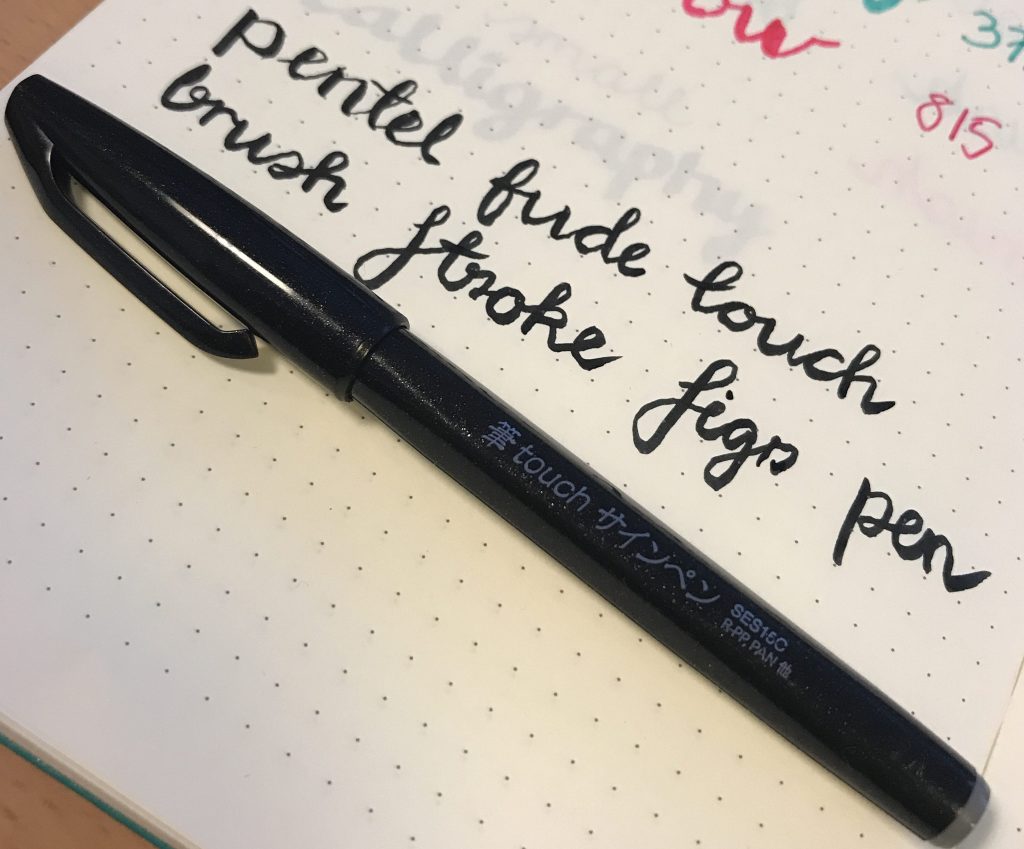 37
815
pentel fude touch
brush stroke sign pen
筆touch サインペン SES15C
R-PP, PAN 他
calligraphy